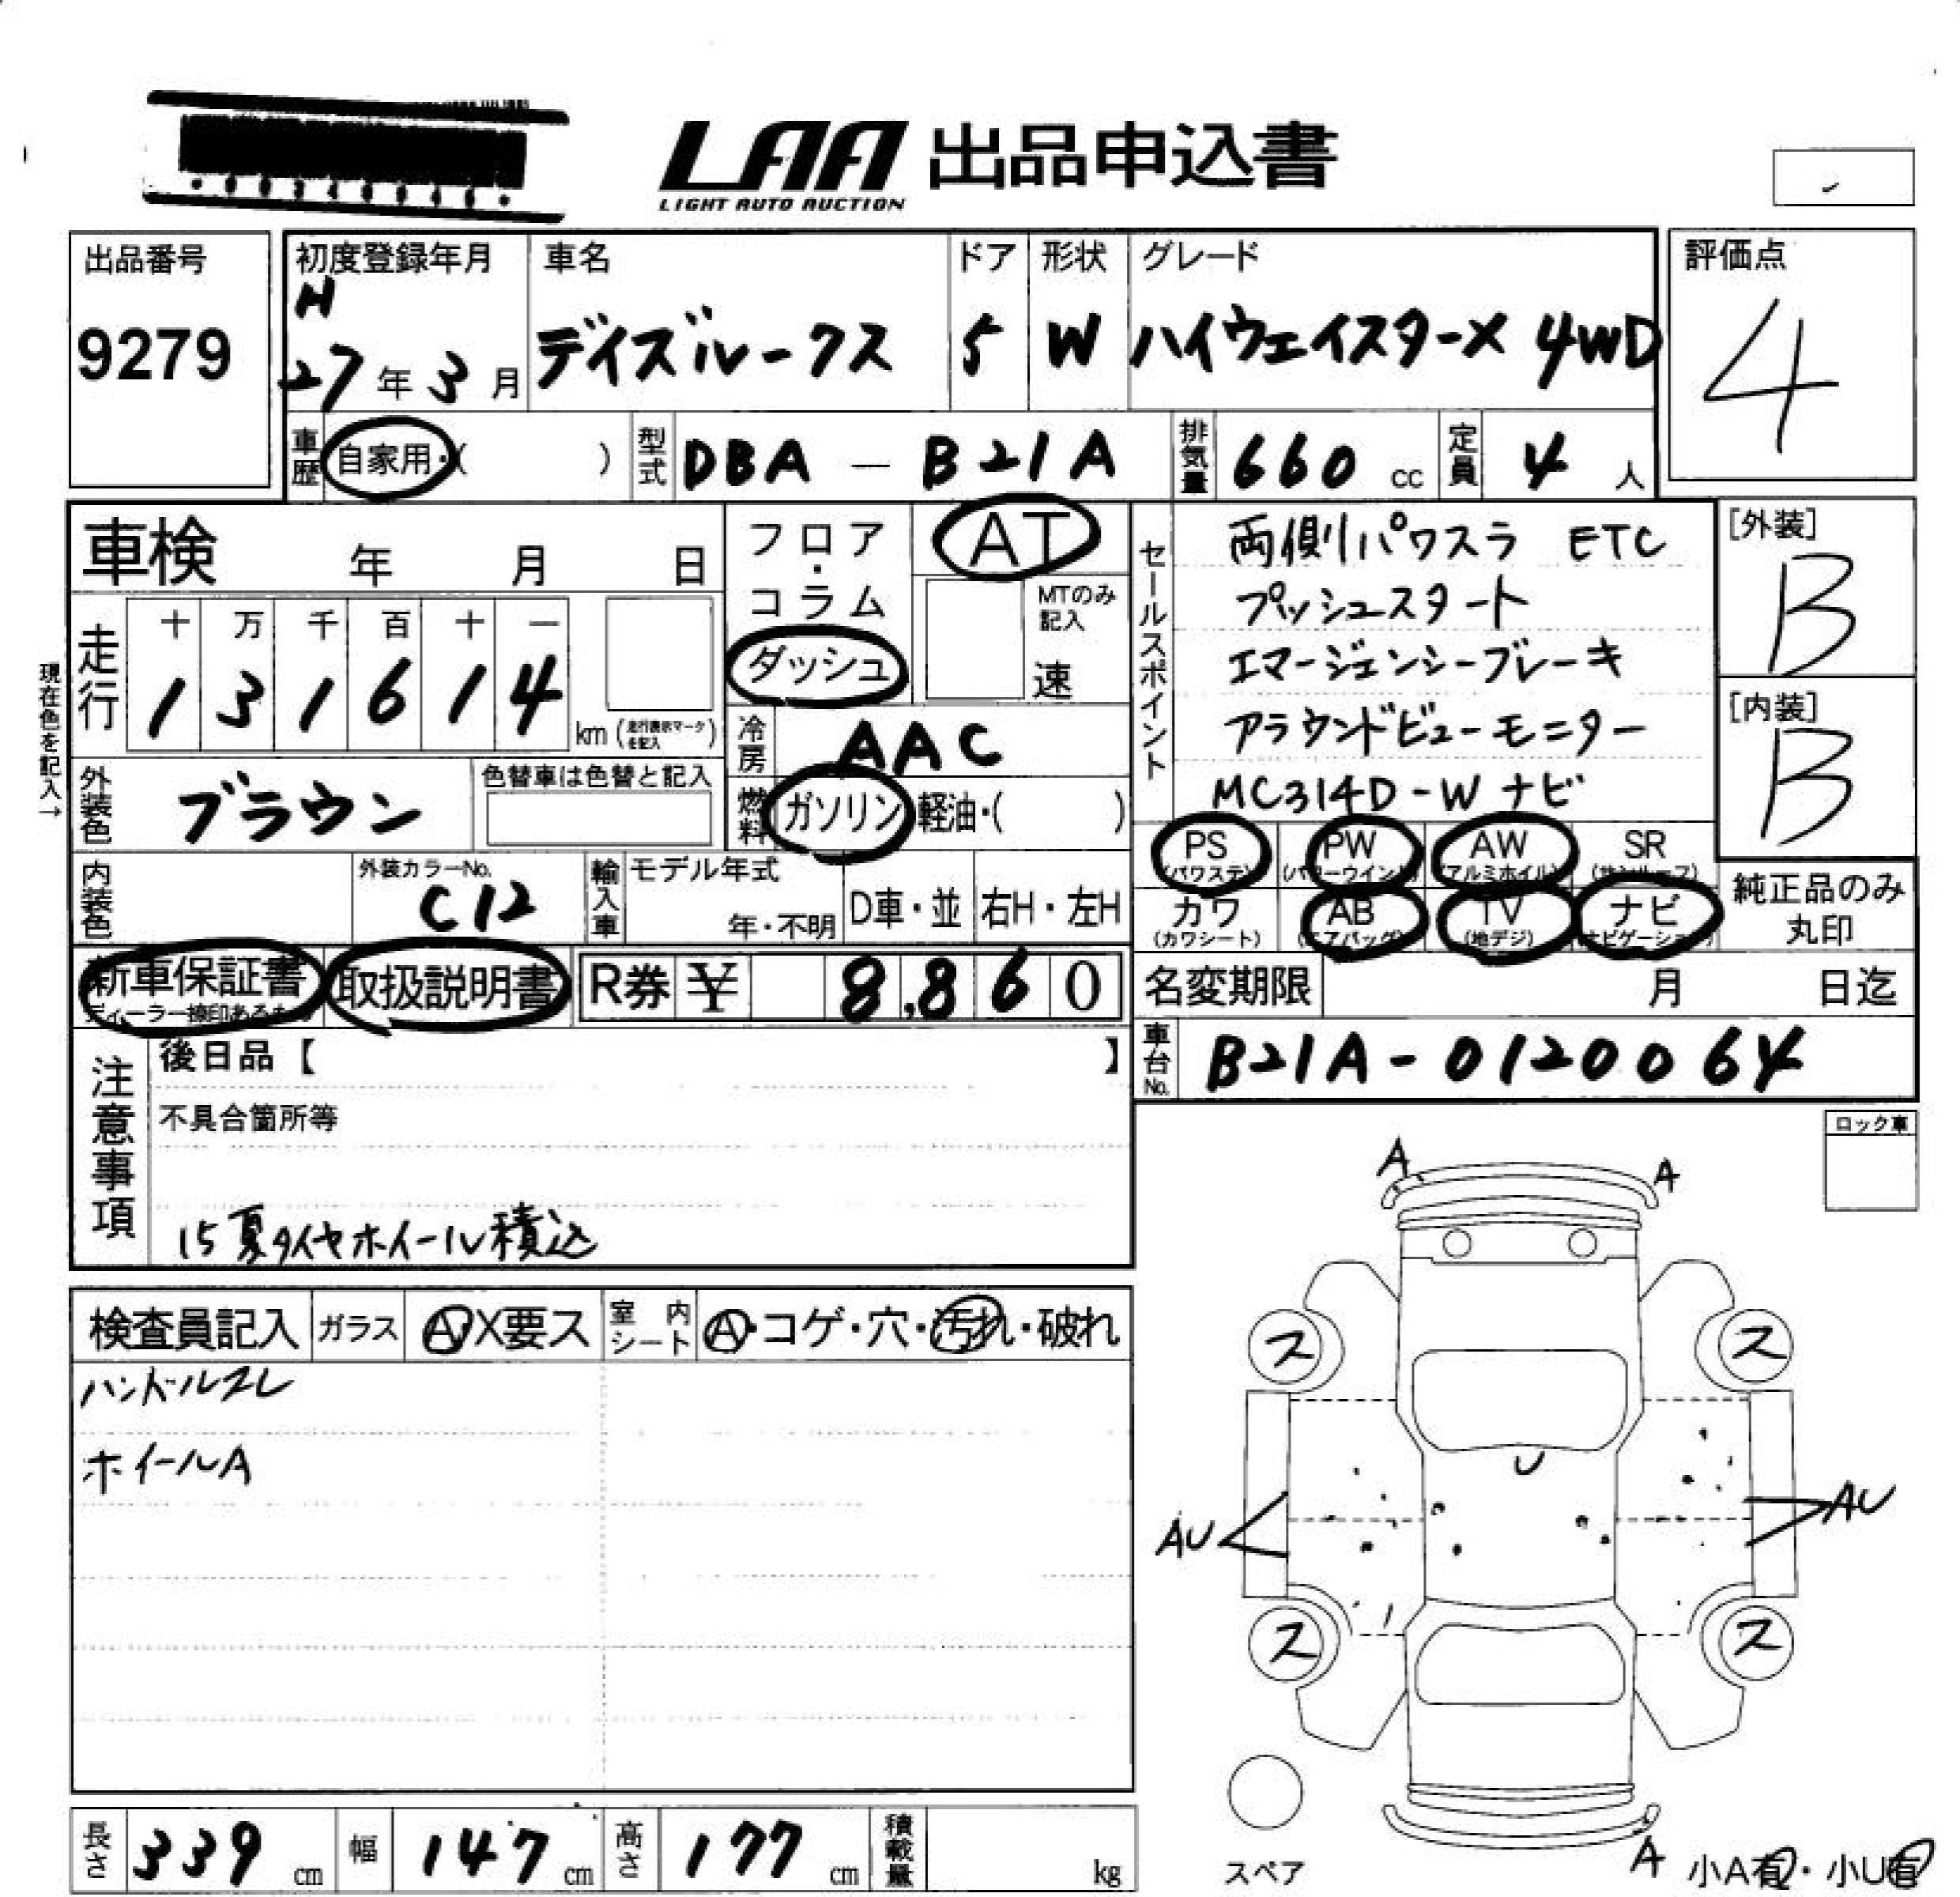 LAA 出品申込書
LIGHT AUTO AUCTION
出品番号 9279
初度登録年月 H 27年3月
車名 デイズルークス
ドア 5
形状 W
グレード ハイウェイスターX 4WD
評価点 4
車歴 自家用・( )
型式 DBA - B21A
排気量 660 cc
定員 4 人
車検 年 月 日
フロア・コラム ダッシュ
AT
MTのみ記入 速
セールスポイント
両側パワスラ ETC
プッシュスタート
エマージェンシーブレーキ
アラウンドビューモニター
MC314D-W ナビ
[外装] B
[内装] B
現在色を記入→
走行 十 万 千 百 十 一
1 3 1 6 1 4 km (走行表示マークを記入)
冷房 AAC
外装色 ブラウン
色替車は色替と記入
燃料 ガソリン 軽油・( )
PS (パワステ) PW (パワーウインド) AW (アルミホイル) SR (サンルーフ)
カワ (カワシート) AB (エアバッグ) TV (地デジ) ナビ (ナビゲーション)
純正品のみ丸印
内装色
外装カラーNo. C12
輸入車 モデル年式 年・不明 D車・並 右H・左H
新車保証書 取扱説明書
R券 ¥ 8,860
名変期限 月 日迄
車台No. B21A-0120064
注意事項
後日品【 】
不具合箇所等
15夏タイヤホイール積込
ロック車
検査員記入 ガラス A・X要ス 室内シート A・コゲ・穴・汚れ・破れ
ハンドルスレ
ホイールA
A A
ス ス
U
AU AU
ス ス
スペア
A
小A有・小U有
長さ 339 cm 幅 147 cm 高さ 177 cm 積載量 kg